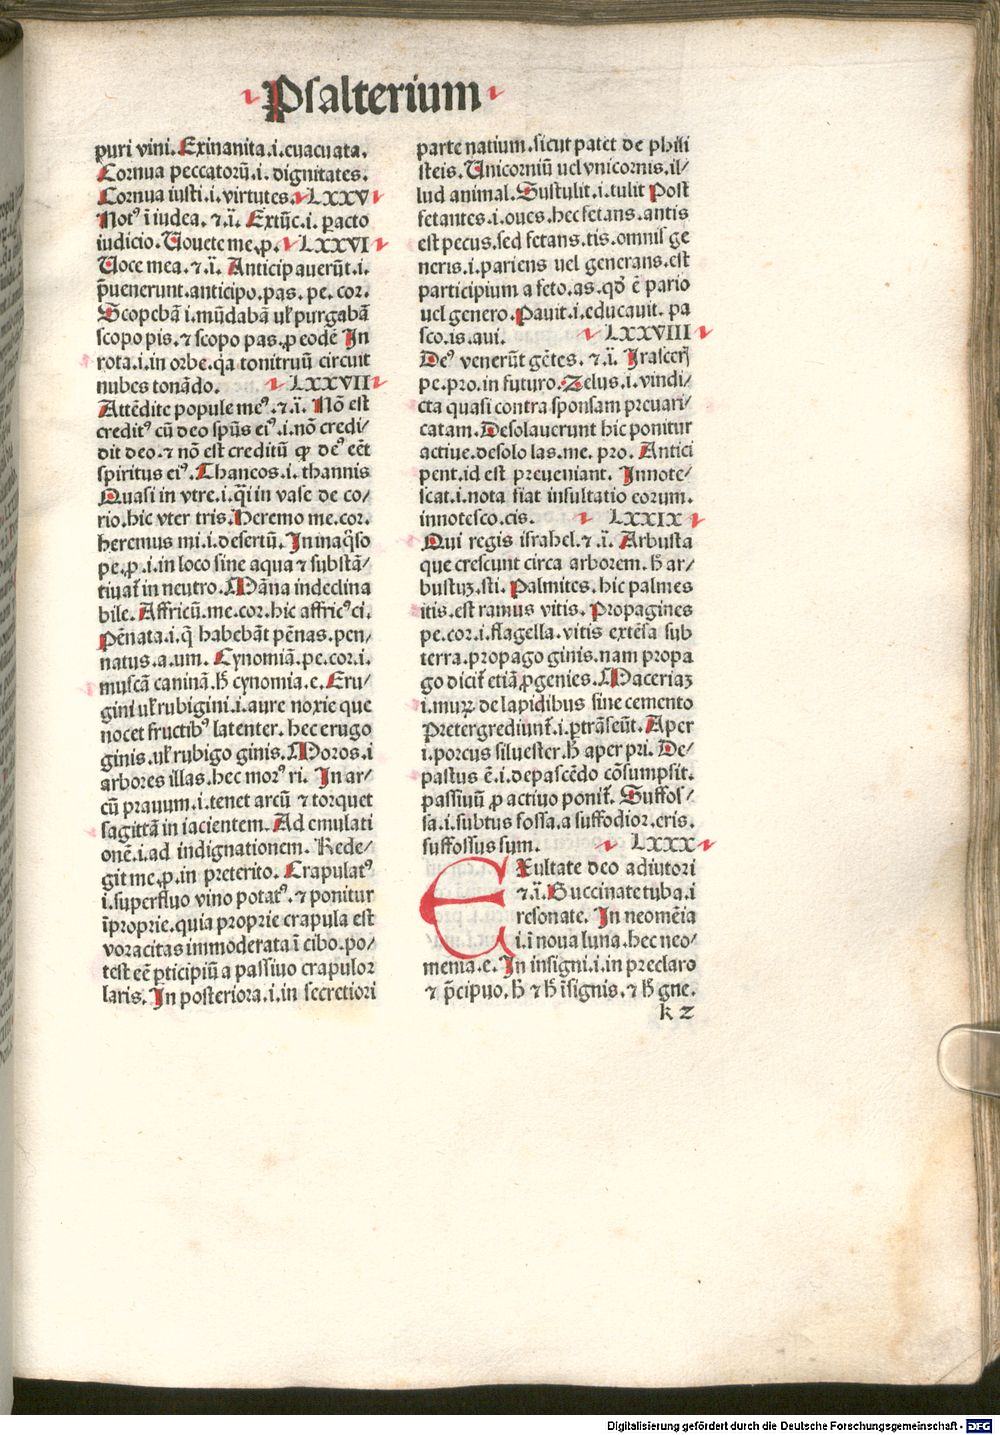 Psalterium
puri vini. Exinanita.i.euacuata.
Cornua peccatorū.i. dignitates.
Cornua iusti.i. virtutes. LXXV
Notꝰ ī iudea. ⁊.ī. Extūc.i. ꝑacto
iudicio. Vouete me.ꝓ. LXXVI
Voce mea. ⁊.ī. Anticipauerūt.i.
p̄uenerunt.anticipo.pas.pe.cor.
Scopebā i.mūdabā ul̕ purgabā
scopo pis.⁊ scopo pas.ꝓ eodē In
rota.i.in orbe.q̇a tonitruū circuit
nubes tonādo. LXXVII
Attēdite popule meꝰ.⁊.ī. Nō est
creditꝰ cū deo spūs eiꝰ.i.nō credi/
dit deo.⁊ nō est creditū ꝙ deꝰ eēt
spiritus eiꝰ. Thaneos.i. thannis
Quasi in vtre.i.q̄i in vase de co/
rio.hic vter tris. Heremo me.cor.
heremus mi.i.desertū. In inaq̄so
pe.ꝓ.i.in loco sine aqua ⁊ substā/
tiuat̄ in neutro. Māna indeclina
bile. Affricū.me.cor.hic affricꝰ ci.
Pēnata.i.q̄ habebāt pēnas.pen/
natus.a.um. Cynomiā.pe.cor.i.
muscā caninā.h̄ cynomia.e. Eru/
gini ul̕ rubigini.i.aure noxie que
nocet fructibꝰ latenter. hec erugo
ginis.ul̕ rubigo ginis. Moros.i
arbores illas.hec morꝰ ri. In ar/
cū prauum.i.tenet arcū ⁊ torquet
sagittā in iacientem. Ad emulati
onē.i.ad indignationem. Rede/
git me.ꝓ.in preterito. Crapulatꝰ
i.superfluo vino potatꝰ.⁊ ponitur
īproprie.quia proprie crapula est
voracitas immoderata ī cibo.po/
test eē ꝑticipiū a passiuo crapulor
laris. In posteriora.i.in secretiori
parte natium.sicut patet de phili
steis. Vnicorniū uel vnicornis.il/
lud animal. Sustulit.i.tulit Post
fetantes.i.oues.hec fetans.antis
est pecus.sed fetans.tis.omnis ge
neris.i.pariens uel generans.est
participium a feto.as.qđ ē pario
uel genero. Pauit.i.educauit. pa
sco.is.aui. LXXVIII
Deꝰ venerūt gētes. ⁊.ī. Irasceris̄
pe.pro.in futuro. Zelus.i.vindi/
cta quasi contra sponsam preuari/
catam. Desolauerunt hic ponitur
actiue.desolo las.me. pro. Antici
pent.id est preueniant. Innote/
scat.i.nota fiat insultatio eorum.
innotesco.cis. LXXIX
Qui regis israhel.⁊.ī. Arbusta
que crescunt circa arborem. h̄ ar/
bustuꝫ.sti. Palmites. hic palmes
itis.est ramus vitis. Propagines
pe.cor.i.flagella.vitis extēsa sub
terra.propago ginis.nam propa
go dicit̄ etiā ꝓgenies. Maceriaꝫ
i.muꝝ de lapidibus sine cemento
Pretergrediunt̄.i.ꝑtrāseūt. Aper
i.porcus siluester.h̄ aper pri. De/
pastus ē.i.depascēdo cōsumpsit.
passiuū ꝓ actiuo ponit̄. Suffos/
sa.i.subtus fossa.a suffodior.eris.
suffossus sum. LXXX
Exultate deo adiutori
⁊.ī. Buccinate tuba.i
resonate. In neomēia
i.ī noua luna.hec neo/
menia.e. In insigni.i.in preclaro
⁊ p̄cipuo. h̄ ⁊ h̄ īsignis.⁊ h̄ gne.
k 2
Digitalisierung gefördert durch die Deutsche Forschungsgemeinschaft - DFG